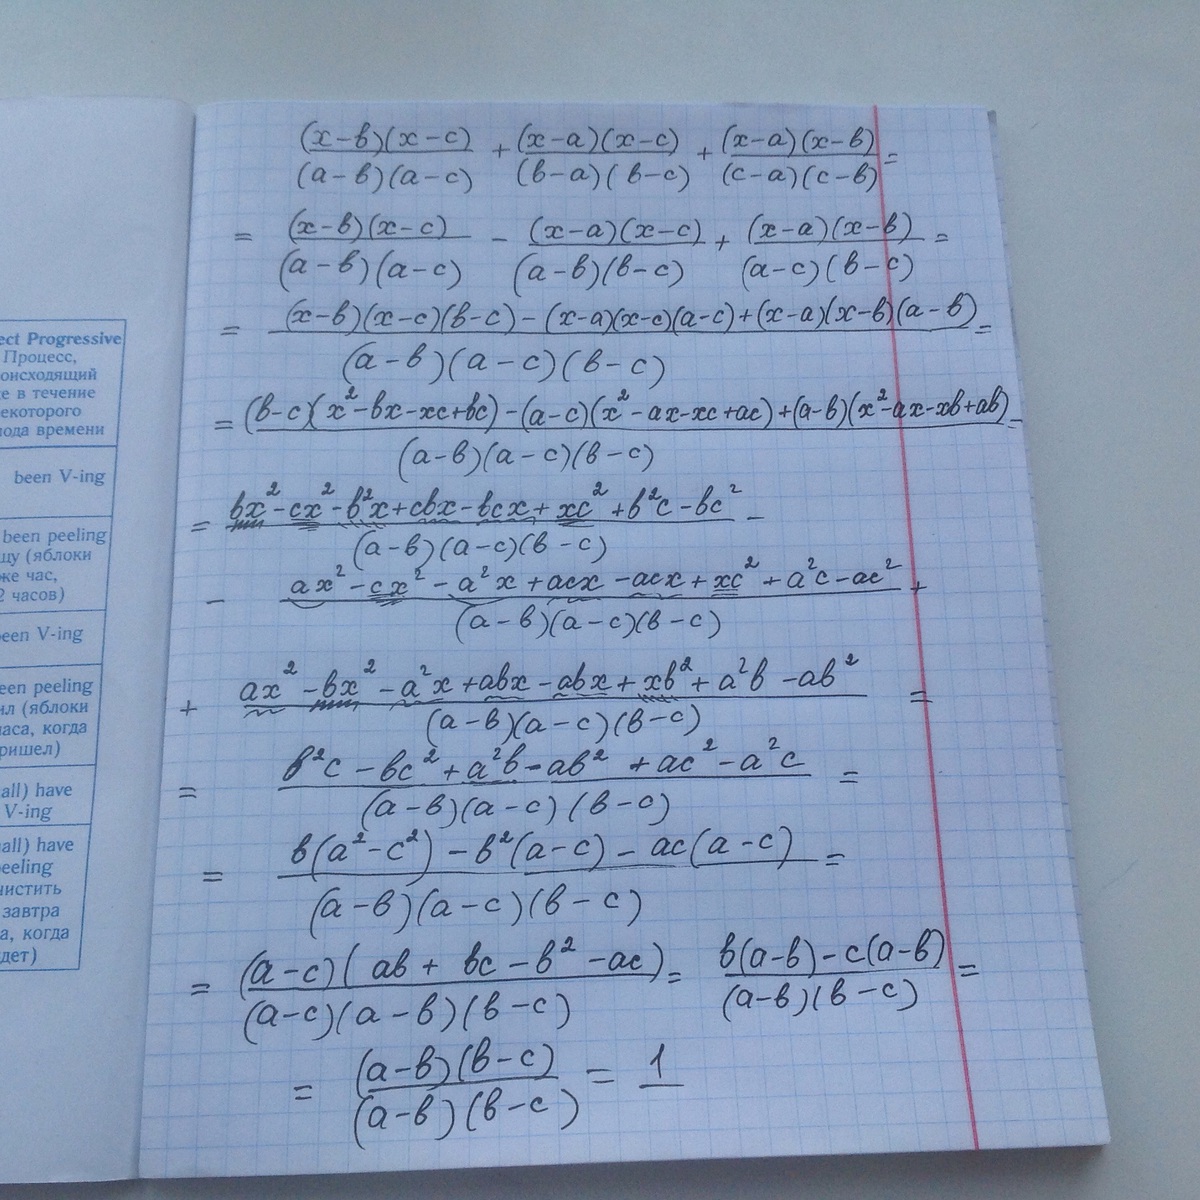 ect Progressive
Процесс,
оисходящий
е в течение
екоторого
иода времени
been V-ing
been peeling
щу (яблоки
же час,
2 часов)
een V-ing
een peeling
ил (яблоки
часа, когда
ришел)
all) have
V-ing
all) have
eeling
чистить
завтра
а, когда
дет)
(x-в)(x-c)/(a-в)(a-c) + (x-a)(x-c)/(в-a)(в-c) + (x-a)(x-в)/(c-a)(c-в) =
= (x-в)(x-c)/(a-в)(a-c) - (x-a)(x-c)/(a-в)(в-c) + (x-a)(x-в)/(a-c)(в-c) =
= (x-в)(x-c)(в-c) - (x-a)(x-c)(a-c) + (x-a)(x-в)(a-в)/(a-в)(a-c)(в-c) =
= (в-c)(x²-вx-xc+вc) - (a-c)(x²-ax-xc+ac) + (a-в)(x²-ax-xв+aв)/(a-в)(a-c)(в-c) =
= вx²-cx²-в²x+cвx-вcx+xc²+в²c-вc²/(a-в)(a-c)(в-c) -
- ax²-cx²-a²x+acx-acx+xc²+a²c-ac²/(a-в)(a-c)(в-c) +
+ ax²-вx²-a²x+aвx-aвx+xв²+a²в-aв²/(a-в)(a-c)(в-c) =
= в²c-вc²+a²в-aв²+ac²-a²c/(a-в)(a-c)(в-c) =
= в(a²-c²)-в²(a-c)-ac(a-c)/(a-в)(a-c)(в-c) =
= (a-c)(aв+вc-в²-ac)/(a-c)(a-в)(в-c) = в(a-в)-c(a-в)/(a-в)(в-c) =
= (a-в)(в-c)/(a-в)(в-c) = 1